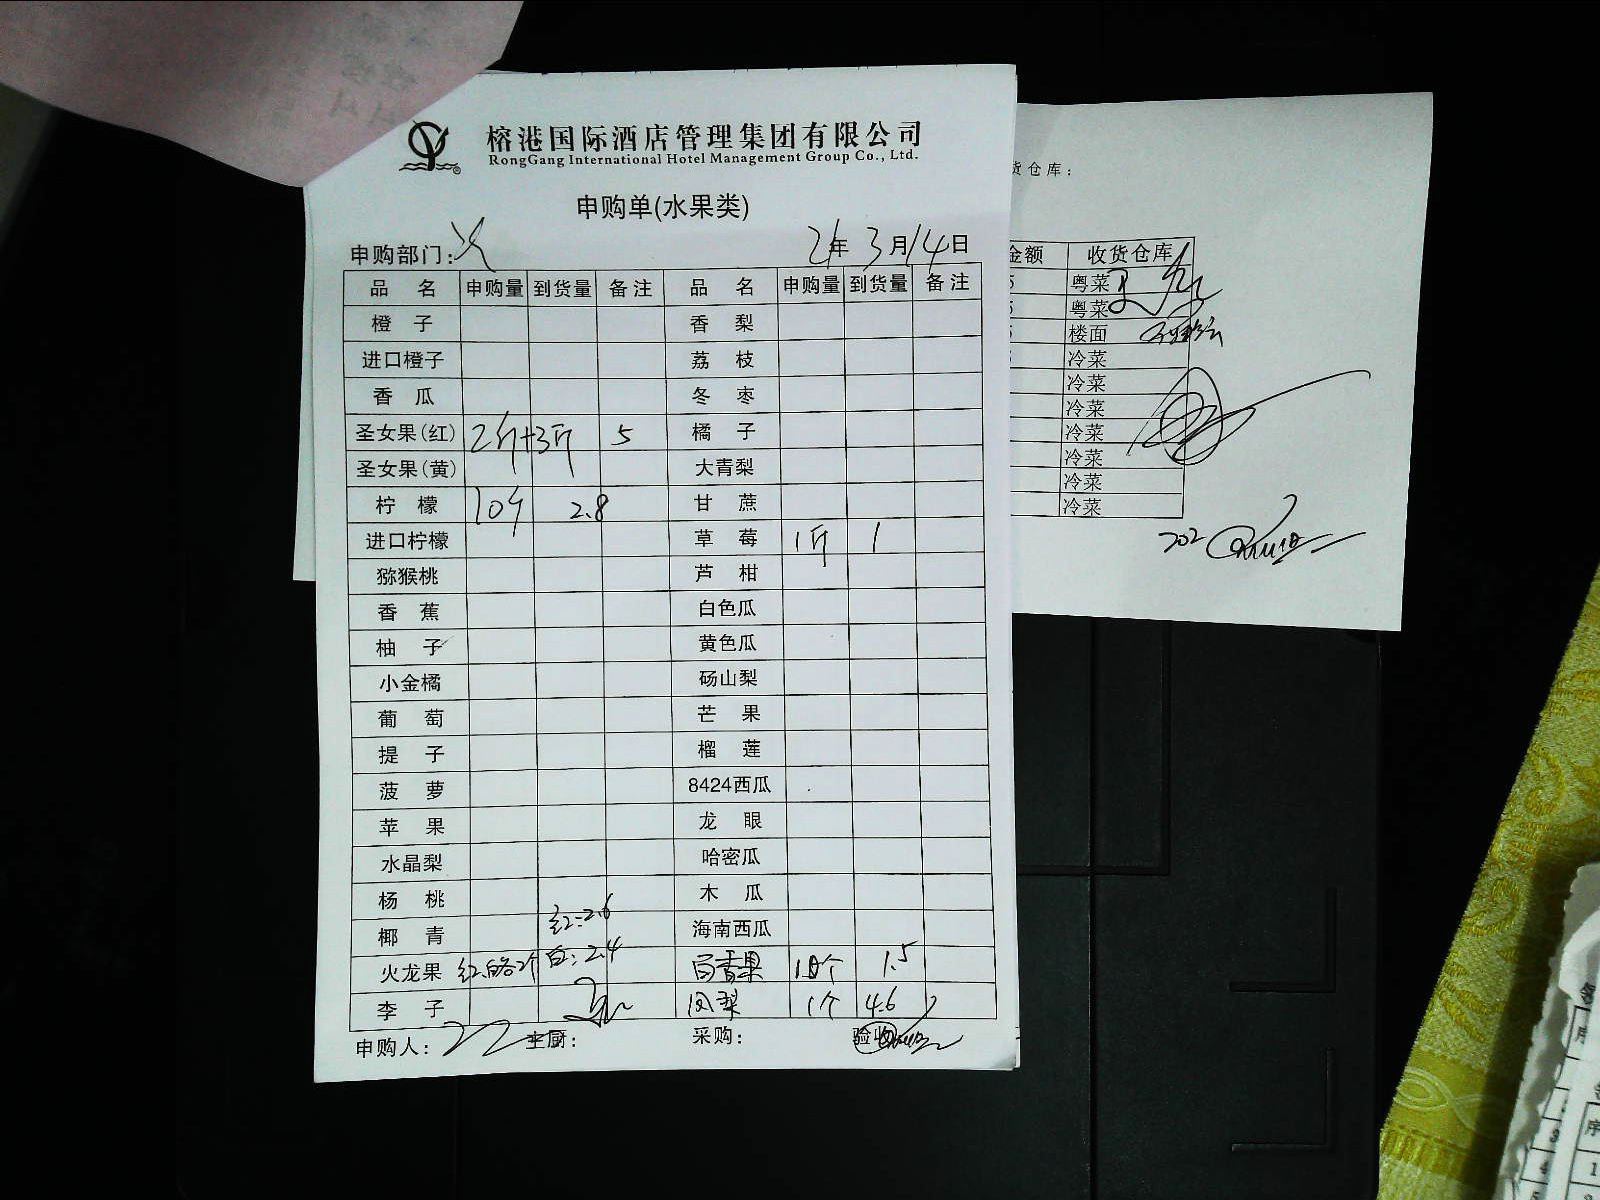 榕港国际酒店管理集团有限公司
RongGang International Hotel Management Group Co., Ltd.
申购单(水果类)
申购部门: 21年 3月14日
品名 申购量 到货量 备注 品名 申购量 到货量 备注
橙子 香梨
进口橙子 荔枝
香瓜 冬枣
圣女果(红) 2斤+3斤 5 橘子
圣女果(黄) 大青梨
柠檬 10个 2.8 甘蔗
进口柠檬 草莓 1斤 1
猕猴桃 芦柑
香蕉 白色瓜
柚子 黄色瓜
小金橘 砀山梨
葡萄 芒果
提子 榴莲
菠萝 8424西瓜
苹果 龙眼
水晶梨 哈密瓜
杨桃 木瓜
椰青 红:2.6 海南西瓜
火龙果 红.白各2个 白:2.4 百香果 10个 1.5
李子 凤梨 1个 4.6
申购人: 主厨: 采购: 验收
货仓库:
金额 收货仓库
5 粤菜
5 粤菜
5 楼面
冷菜
冷菜
冷菜
冷菜
冷菜
冷菜
冷菜
202
序
3
4
序
1